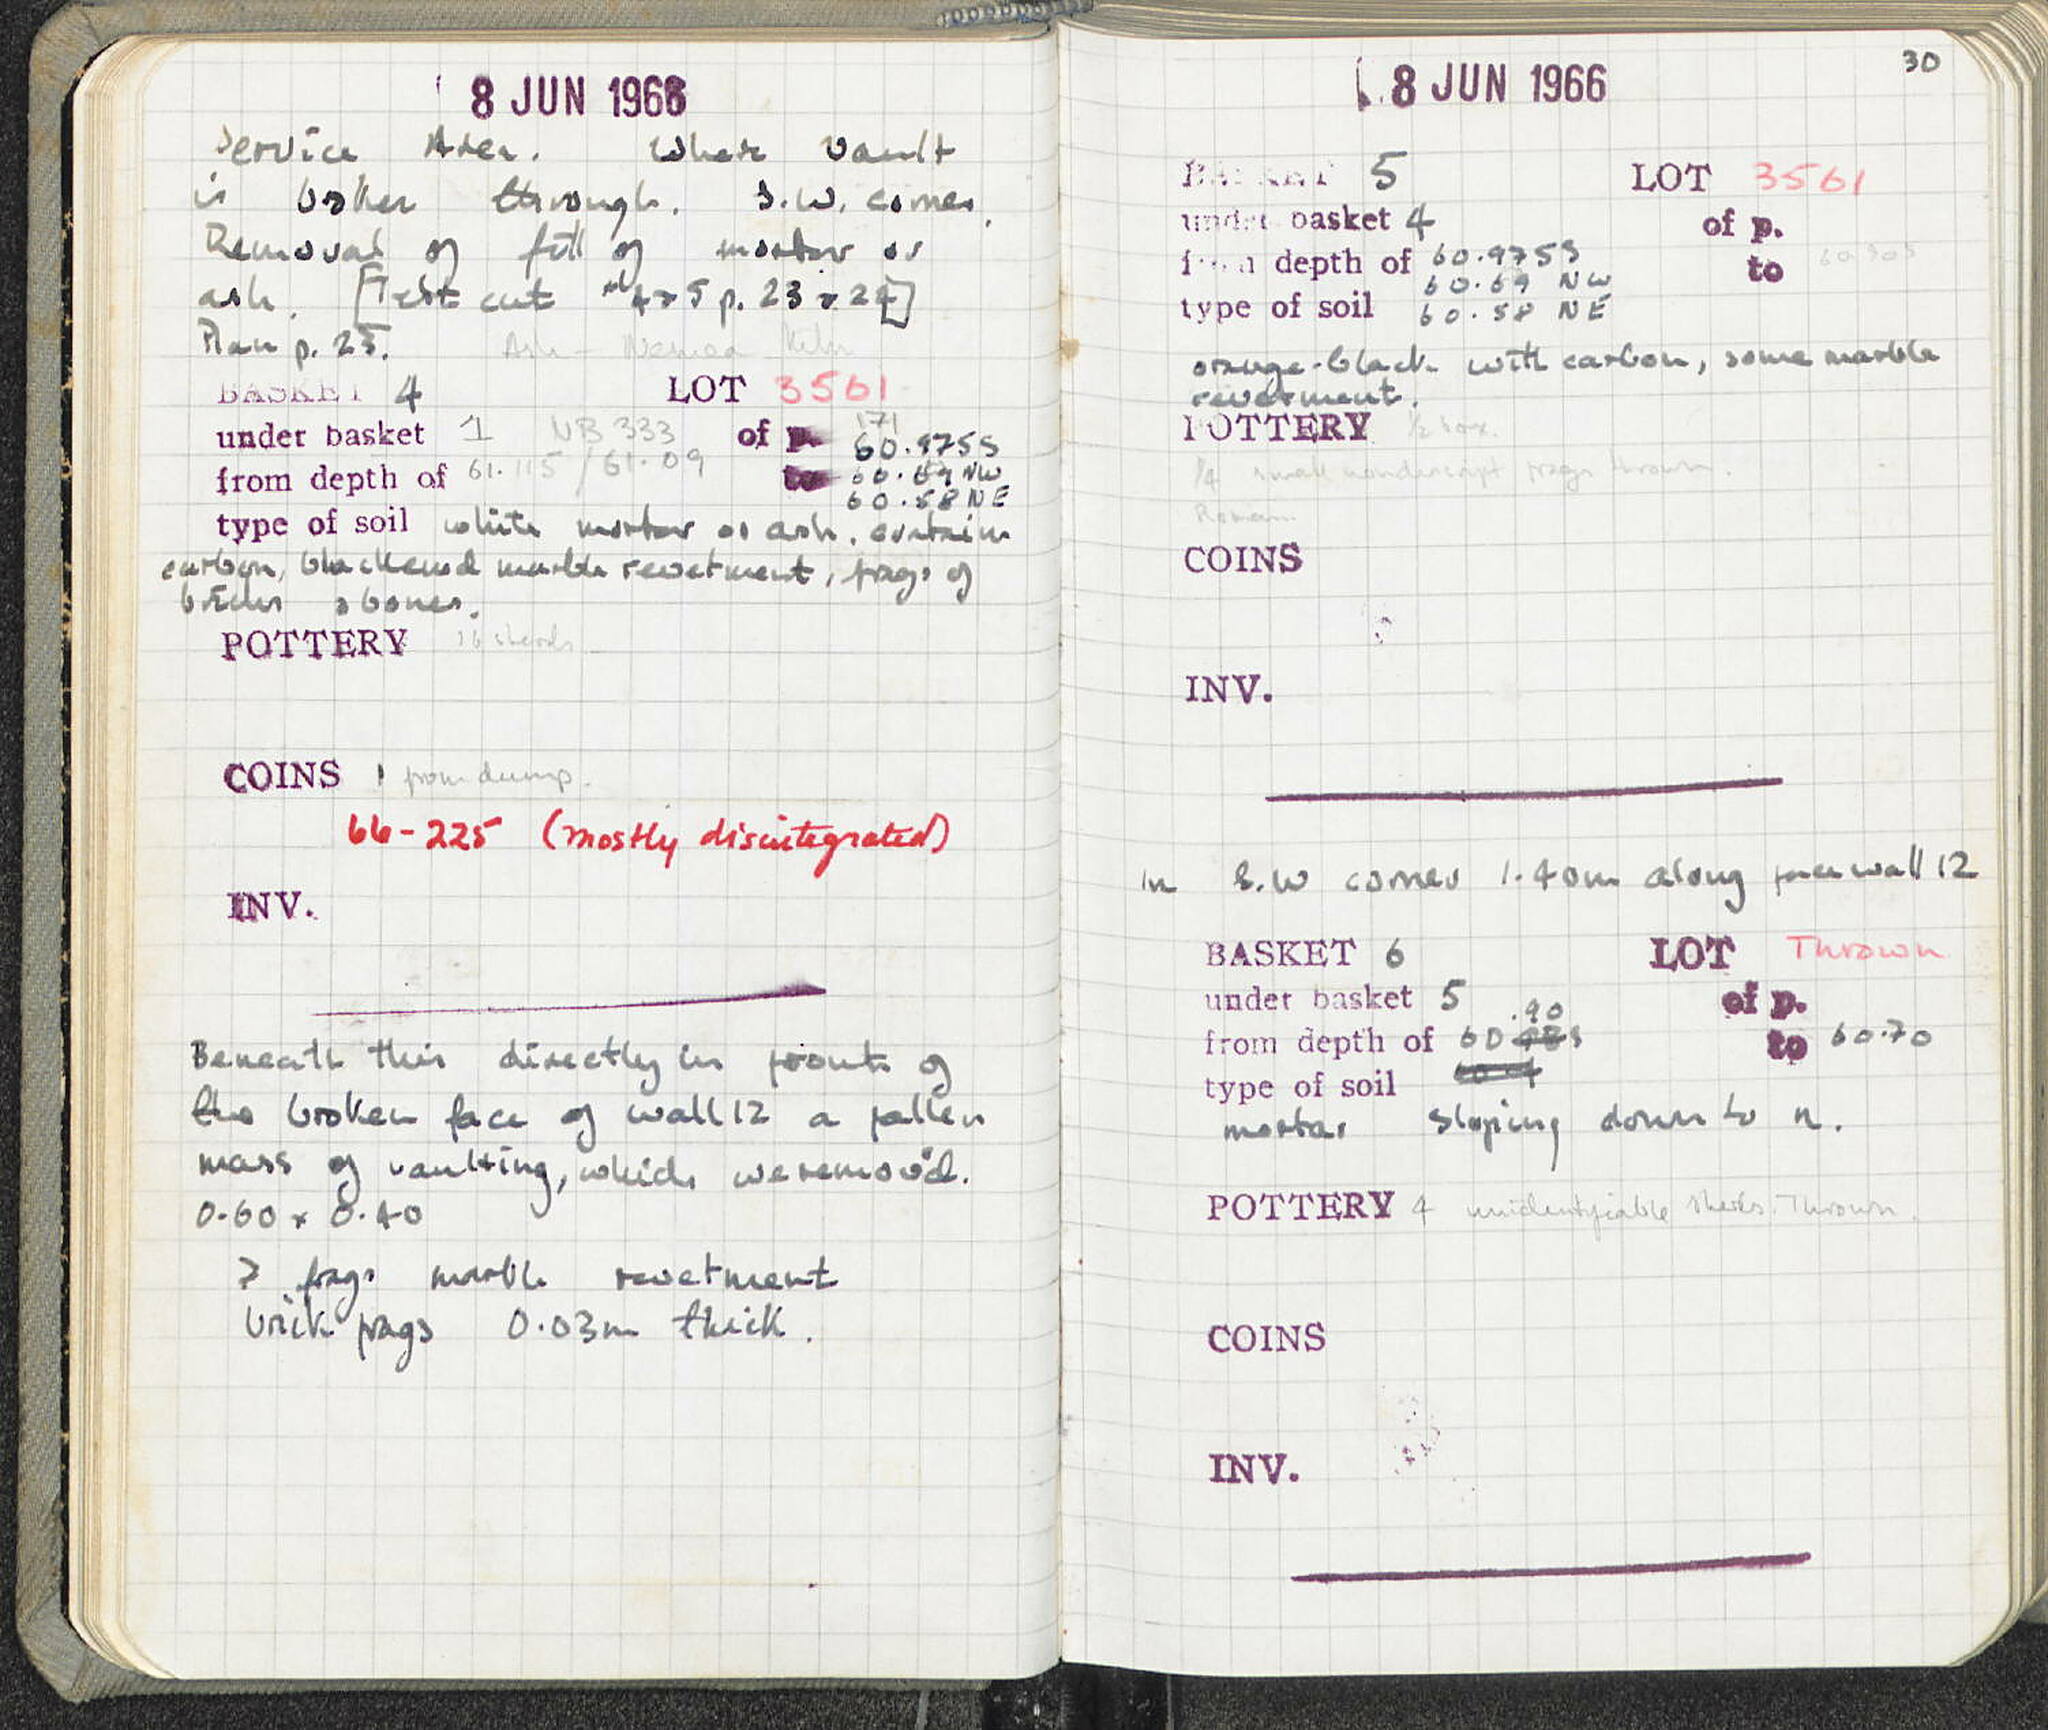 8 JUN 1966
Service Area. Where vault
is broken through. S.W. corner.
Removal of fill of mortar or
ash. [Test cut #4+5 p. 23+24]
Plan p. 25. Ash - Nemea Kiln
BASKET 4 LOT 3561
under basket 1 NB 333 of p. 171
from depth of 61.115/61.09 to 60.975 S
60.69 NW
60.58 NE
type of soil white mortar or ash, contains
carbon, blackened marble revetment, frags of
bricks + bones.
POTTERY 16 sherds
COINS 1 from dump.
66-225 (mostly disintegrated)
INV.
Beneath this directly in front of
the broken face of wall 12 a fallen
mass of vaulting, which we remov'd.
0.60 x 0.40
7 frags marble revetment
brick frags 0.03m thick.
30
8 JUN 1966
BASKET 5 LOT 3561
under basket 4 of p.
from depth of 60.975 S to 60.905
60.69 NW
type of soil 60.58 NE
orange-black with carbon, some marble
revetment.
POTTERY 1/2 box.
1/4 small nondescript frags thrown.
Roman
COINS
INV.
In S.W corner 1.40m along face wall 12
BASKET 6 LOT Thrown
under basket 5 of p.
from depth of 60.90 S to 60.70
type of soil
mortar sloping down to N.
POTTERY 4 unidentifiable sherds. Thrown.
COINS
INV.